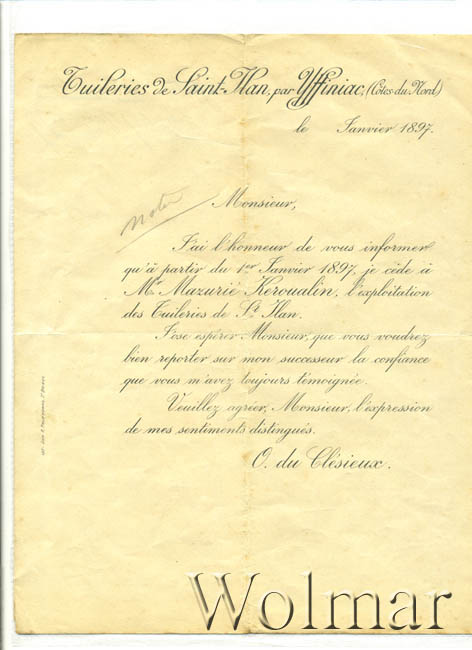 Tuileries de Saint-Ilan, par Yffiniac, (Côtes-du-Nord)
le Janvier 1897.
noter
Monsieur,
J'ai l'honneur de vous informer
qu'à partir du 1er Janvier 1897, je cède à
Mr Mazurié Keroualin, l'exploitation
des Tuileries de St Ilan.
J'ose espérer Monsieur, que vous voudrez
bien reporter sur mon successeur la confiance
que vous m'avez toujours témoignée.
Veuillez agréer, Monsieur, l'expression
de mes sentiments distingués.
O. du Clésieux.
Wolmar